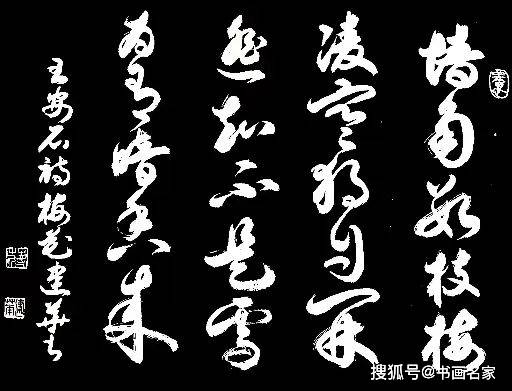 墙角数枝梅
凌寒独自开
遥知不是雪
为有暗香来
王安石诗梅花建华书
搜狐号@书画名家